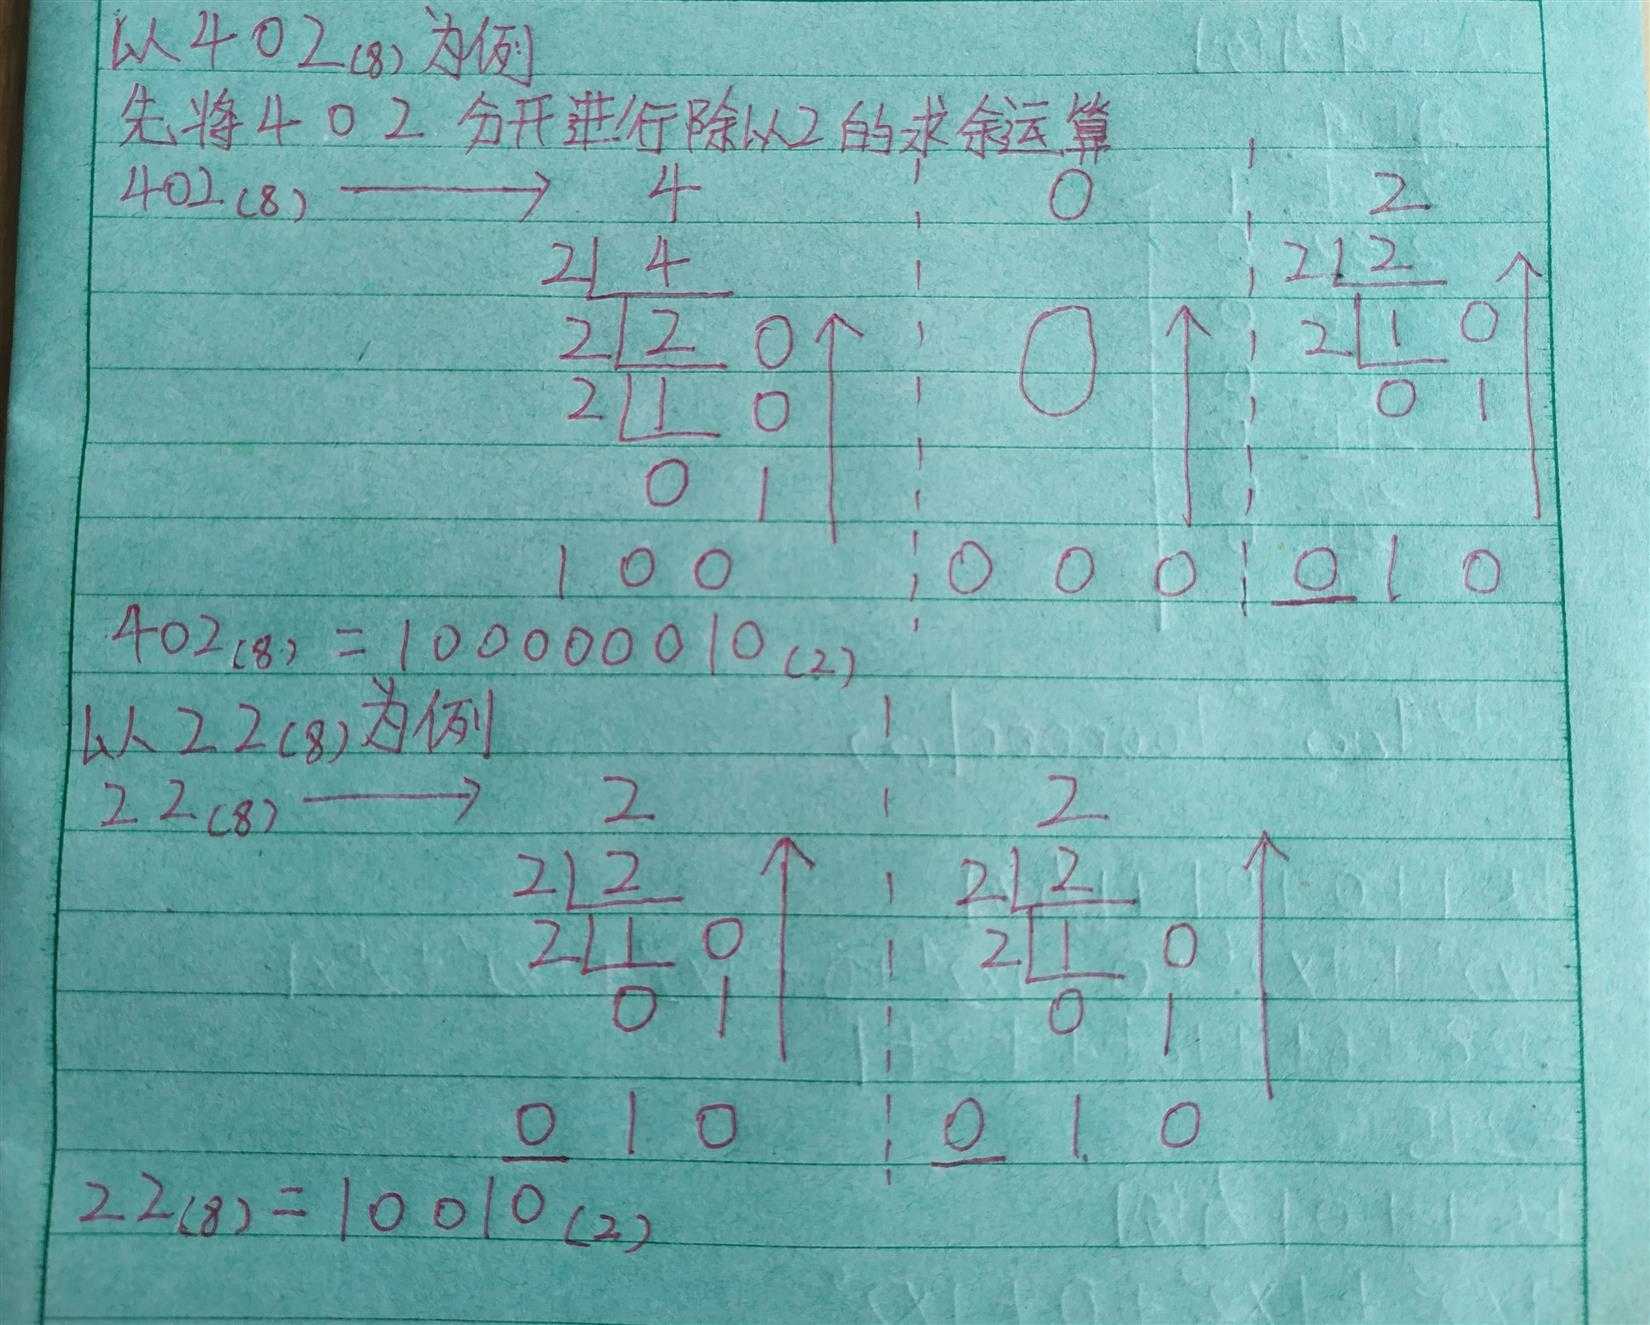 以402(8)为例
先将402分开进行除以2的求余运算
402(8) → 4 0 2
2 4 2 2
2 2 0 0 2 1 0
2 1 0 0 1
0 1
1 0 0 0 0 0 0 1 0
402(8) = 100000010(2)
以22(8)为例
22(8) → 2 2
2 2 2 2
2 1 0 2 1 0
0 1 0 1
0 1 0 0 1 0
22(8) = 10010(2)